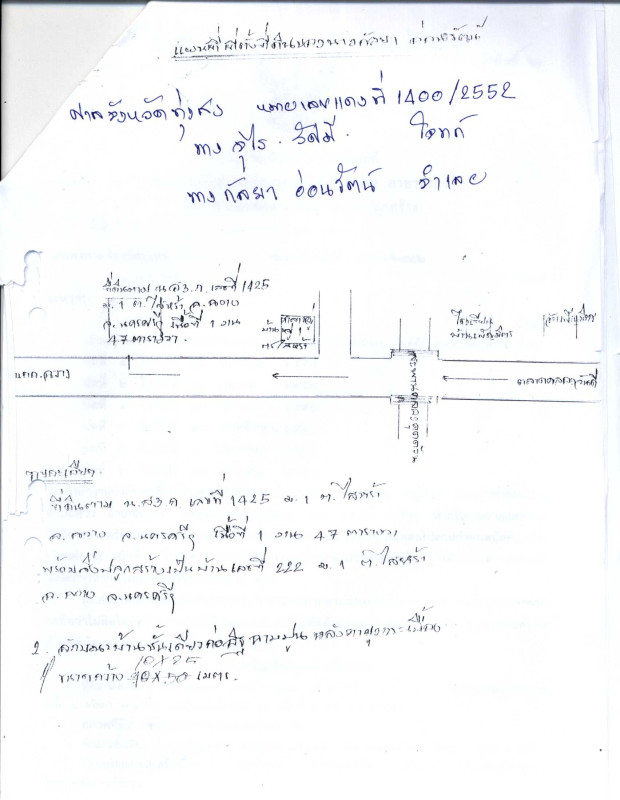 แผนที่ ที่ตั้งที่ดินของนางกัลยา อ่อนรัตน์
ศาลจังหวัดทุ่งสง หมายเลขแดงที่ 1400/2552
นาง จุไร รัศมี โจทก์
นาง กัลยา อ่อนรัตน์ จำเลย
ที่ดินตาม น.ส.3.ก. เลขที่ 1425
ม. 1 ต. ไสหร้า อ. ฉวาง
จ. นครศรีฯ เนื้อที่ 1 งาน
47 ตารางวา
หมู่ 1
ต. ไสหร้า
โรงเรียน
รายละเอียด
ที่ดินตาม น.ส.3 ก เลขที่ 1425 ม. 1 ต. ไสหร้า
อ. ฉวาง จ. นครศรีฯ เนื้อที่ 1 งาน 47 ตารางวา
พร้อมสิ่งปลูกสร้างเป็นบ้านเลขที่ 222 ม. 1 ต. ไสหร้า
อ. ฉวาง จ. นครศรีฯ
2. ลักษณะบ้านชั้นเดียวก่ออิฐฉาบปูน หลังคามุงกระเบื้อง
10 x 25
ขนาดกว้าง 10 x 50 เมตร.